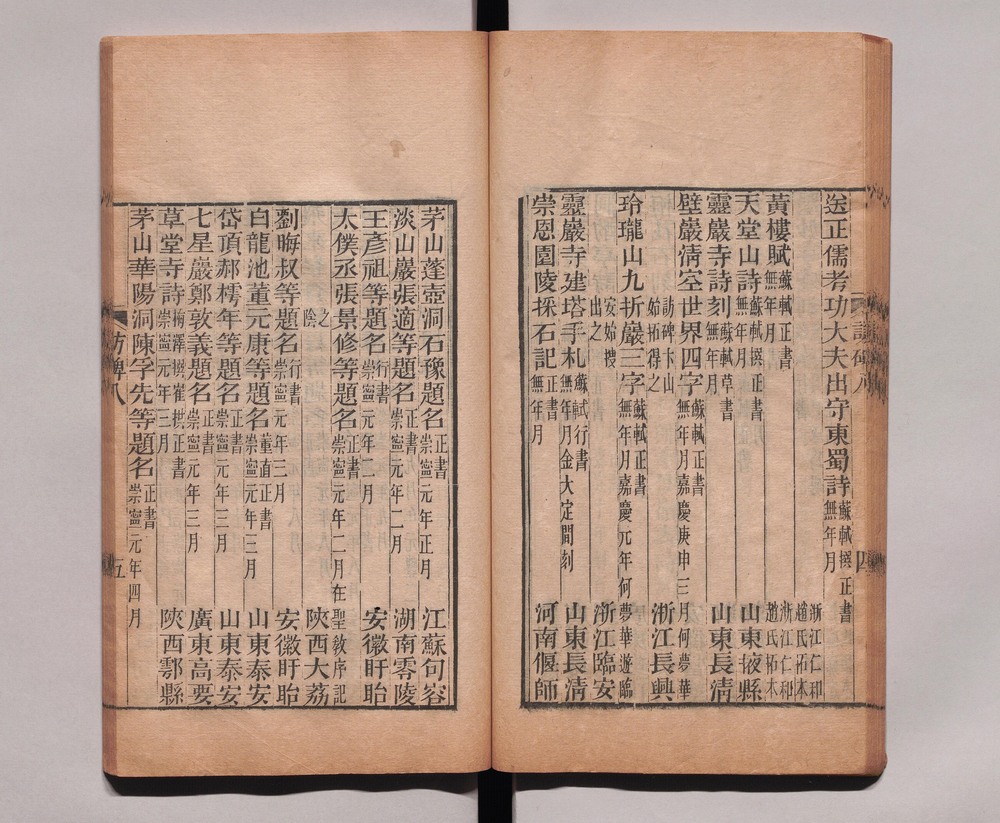 送正儒考功大夫出守東蜀詩 蘇軾撰正書 無年月 浙江仁和趙氏拓本
黃樓賦 蘇軾正書 無年月 浙江仁和趙氏拓本
天堂山詩 蘇軾撰正書 無年月 山東掖縣
靈巖寺詩刻 蘇軾草書 無年月 山東長清
壁巖清空世界四字 蘇軾正書 無年月嘉慶庚申三月何夢華
訪碑卞山始拓得之 浙江長興
玲瓏山九折巖三字 蘇軾正書 無年月嘉慶元年何夢華遊臨
安始搜出之 浙江臨安
靈巖寺建塔手札 蘇軾行書 無年月金大定間刻 山東長清
崇恩園陵採石記 正書 無年月 河南偃師
訪碑八
四
茅山蓬壺洞石豫題名 正書 崇寧元年正月 江蘇句容
淡山巖張適等題名 正書 崇寧元年二月 湖南零陵
王彥祖等題名 行書 崇寧元年二月 安徽盱眙
太僕丞張景修等題名 正書 崇寧元年二月在聖教序記
之陰 陝西大荔
劉晦叔等題名 行書 崇寧元年三月 安徽盱眙
白龍池董元康等題名 董直正書 崇寧元年三月 山東泰安
岱頂郝樗年等題名 正書 崇寧元年三月 山東泰安
七星巖鄭敦義題名 正書 崇寧元年三月 廣東高要
草堂寺詩 梅澤撰崔拱正書 崇寧元年三月 陝西鄠縣
茅山華陽洞陳孚先等題名 正書 崇寧元年四月
訪碑八
五